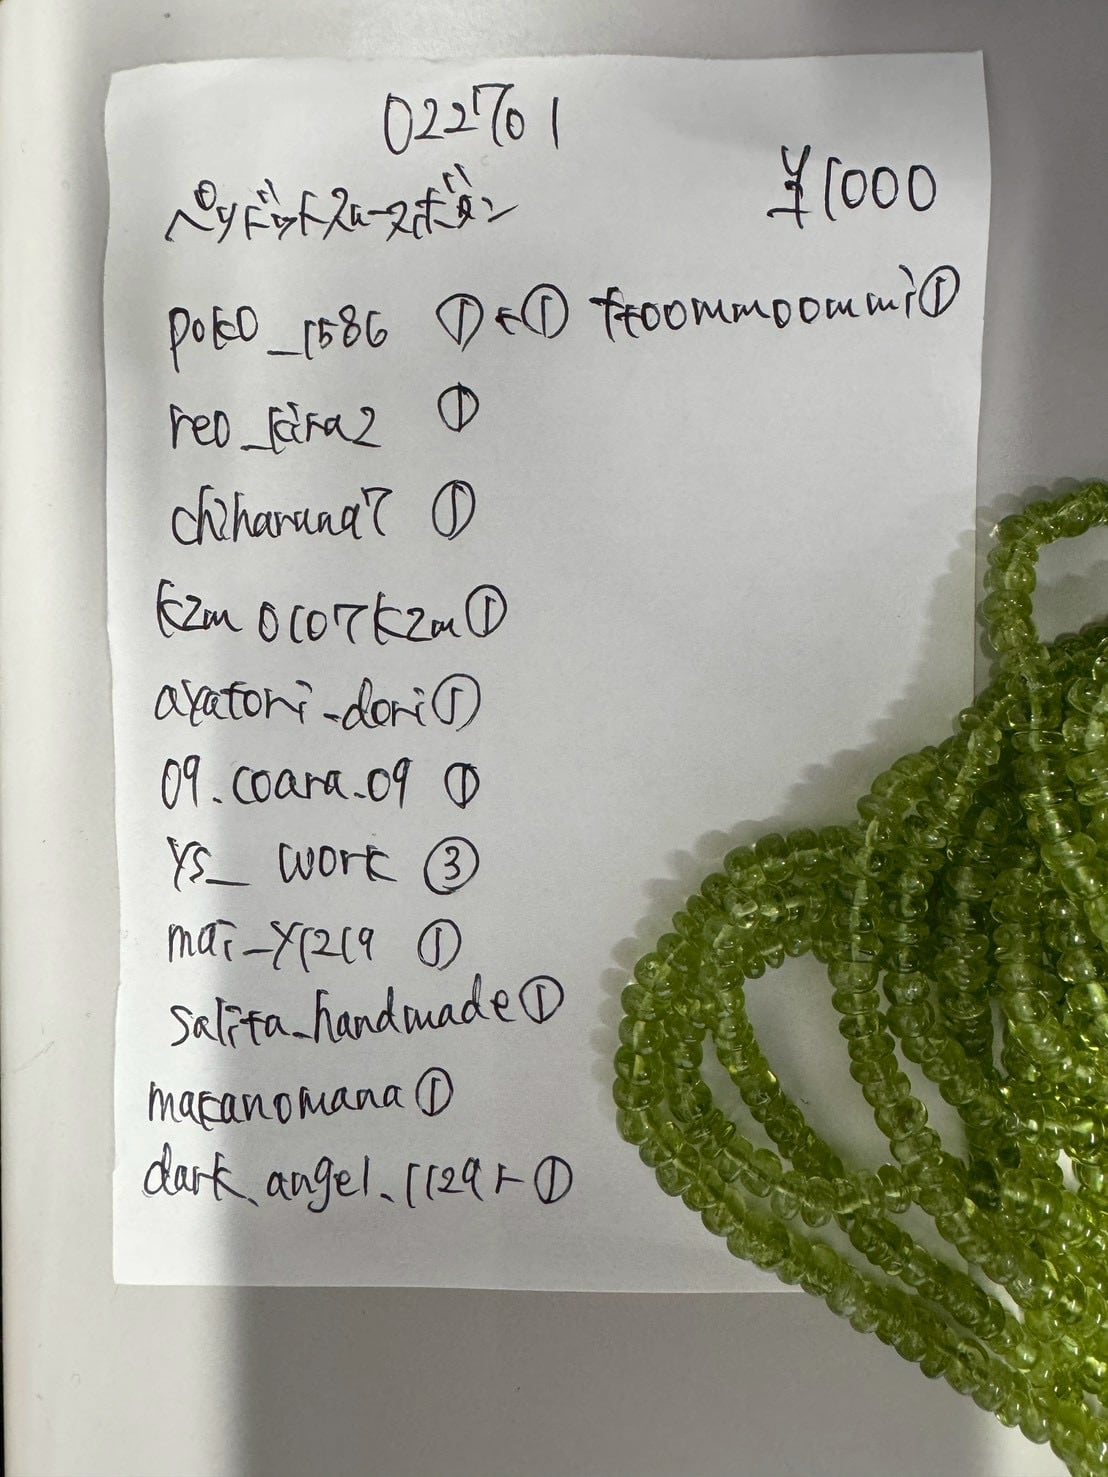 022701
¥1000
ペリドットスムースボタン
poko_1586 ①+① ttoommoommi①
reo_kira2 ①
chiharuna7 ①
kzm0107kzm①
ayatori_dori①
09.coara.09 ①
ys_ work ③
mai_y1219 ①
salita_handmade①
makanomana①
dark.angel.1129r①